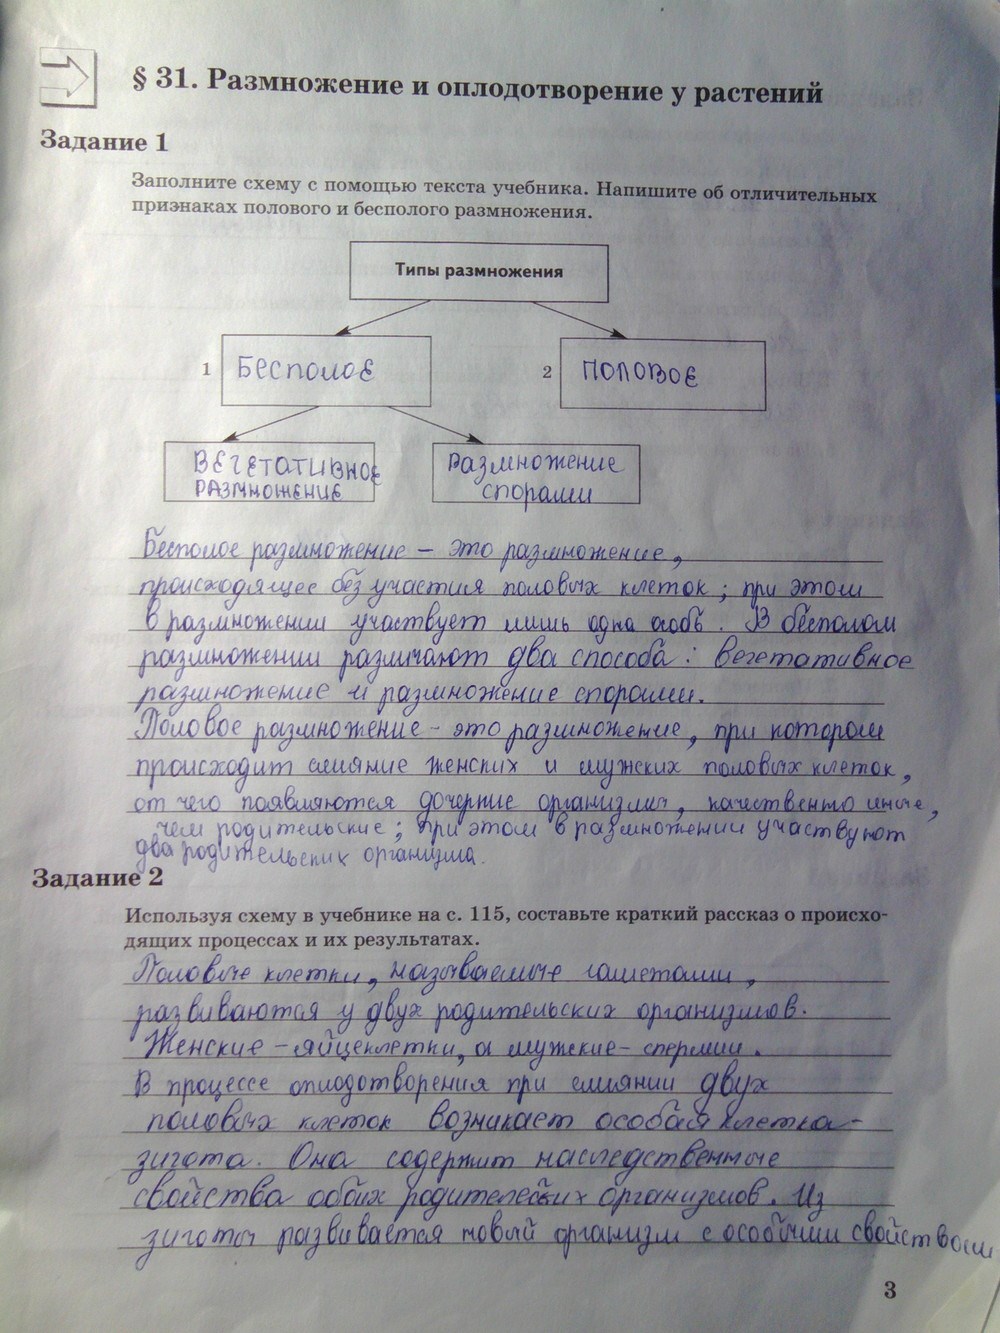 § 31. Размножение и оплодотворение у растений
Задание 1
Заполните схему с помощью текста учебника. Напишите об отличительных
признаках полового и бесполого размножения.
Типы размножения
1 Бесполое
2 половое
Вегетативное
размножение
Размножение
спорами
Бесполое размножение – это размножение,
происходящее без участия половых клеток; при этом
в размножении участвует лишь одна особь. В бесполом
размножении различают два способа: вегетативное
размножение и размножение спорами.
Половое размножение – это размножение, при котором
происходит слияние женских и мужских половых клеток,
от чего появляются дочерние организмы, качественно иные,
чем родительские; при этом в размножении участвуют
два родительских организма.
Задание 2
Используя схему в учебнике на с. 115, составьте краткий рассказ о происхо-
дящих процессах и их результатах.
Половые клетки, называемые гаметами,
развиваются у двух родительских организмов.
Женские – яйцеклетки, а мужские – спермии.
В процессе оплодотворения при слиянии двух
половых клеток возникает особая клетка –
зигота. Она содержит наследственные
свойства обоих родительских организмов. Из
зиготы развивается новый организм с особыми свойствами
3